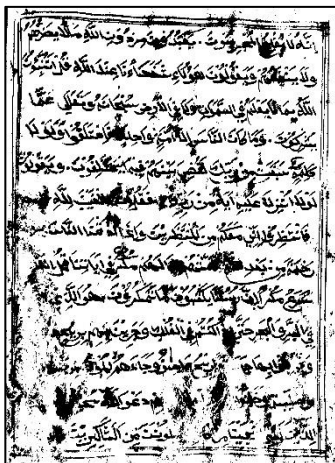 انه لا يفلح المجرمون ويعبدون من دون الله ما لا يضرهم
ولا ينفعهم ويقولون هؤلاء شفعاؤنا عند الله قل اتنبؤن
الله بما لا يعلم في السموات ولا في الارض سبحانه وتعالى عما
يشركون وما كان الناس الا امة واحدة فاختلفوا ولولا
كلمة سبقت من ربك لقضي بينهم فيما فيه يختلفون ويقولون
لولا انزل عليه آية من ربه فقل الغيب لله
فانتظروا اني معكم من المنتظرين واذا اذقنا الناس
رحمة من بعد مستهم اذا لهم مكر في آياتنا قل الله
اسرع مكرا ان رسلنا يكتبون ما تمكرون هو الذي
في البر والبحر حتى كنتم في الفلك وجرين بهم بريح
بها ريح عاصف وجاءهم الموج
دعوا الله
انجيتنا من من الشاكرين